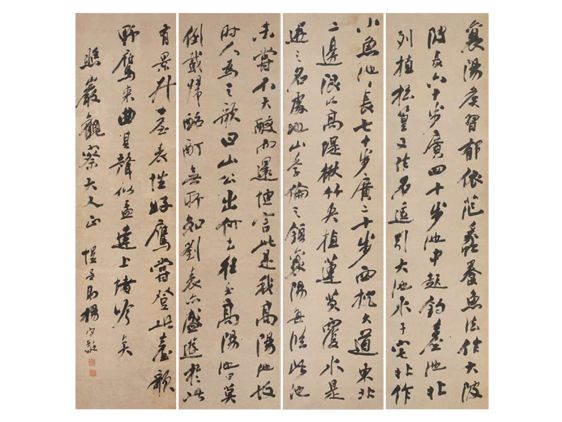 襄陽侯習郁依范蠡養魚法作大陂
陂長六十步廣四十步池中起釣臺池北
列植松篁又作石洑逗引大池水于宅北作
小魚池池長七十步廣二十步西枕大道東北
二邊限以高隄楸竹夾植蓮芡覆水是
遊之名處也山季倫之鎮襄陽每臨此池
未嘗不大醉而還恒言此是我高陽池故
時人為之歌曰山公出何去往至高陽池日莫
倒載歸酩酊無所知劉表亦盛遊於此
有景升臺表性好鷹嘗登此臺歌
野鷹來曲其聲似孟達上堵吟矣
樵巖觀察大人正 惺吾弟楊守敬